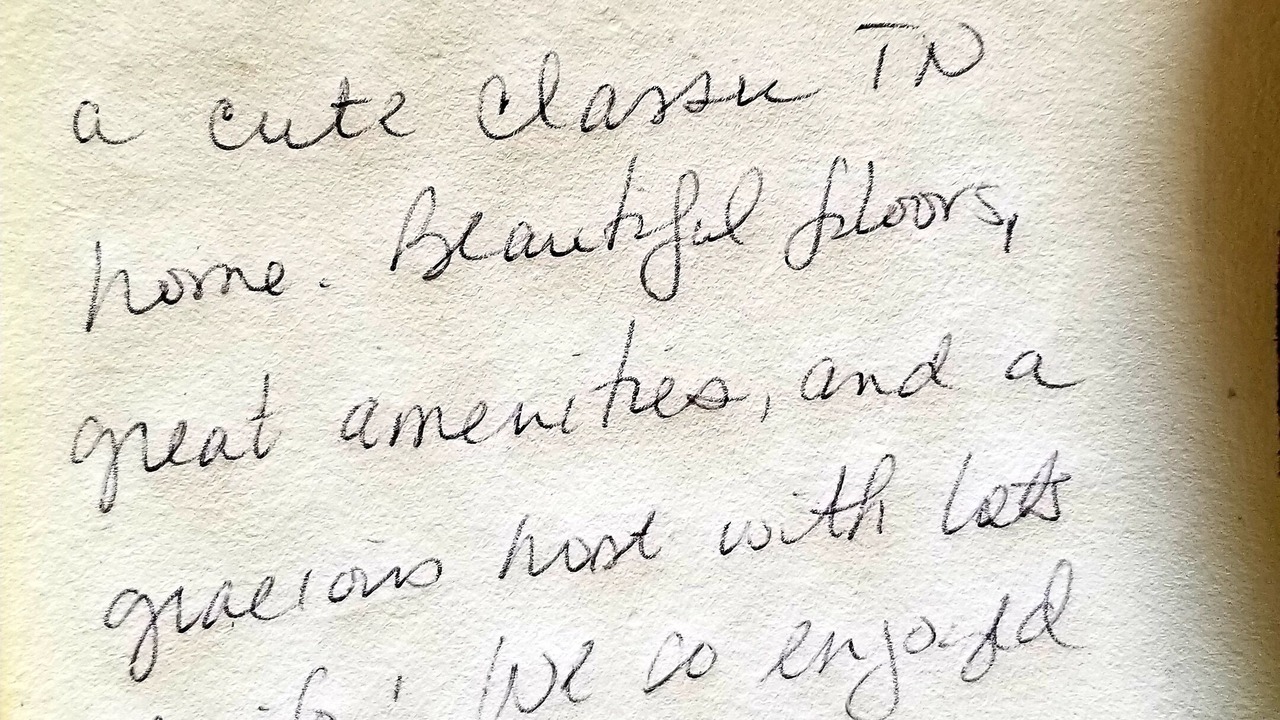 a cute classic TN
home. Beautiful floors,
great amenities, and a
gracious host with lots
We so enjoyed